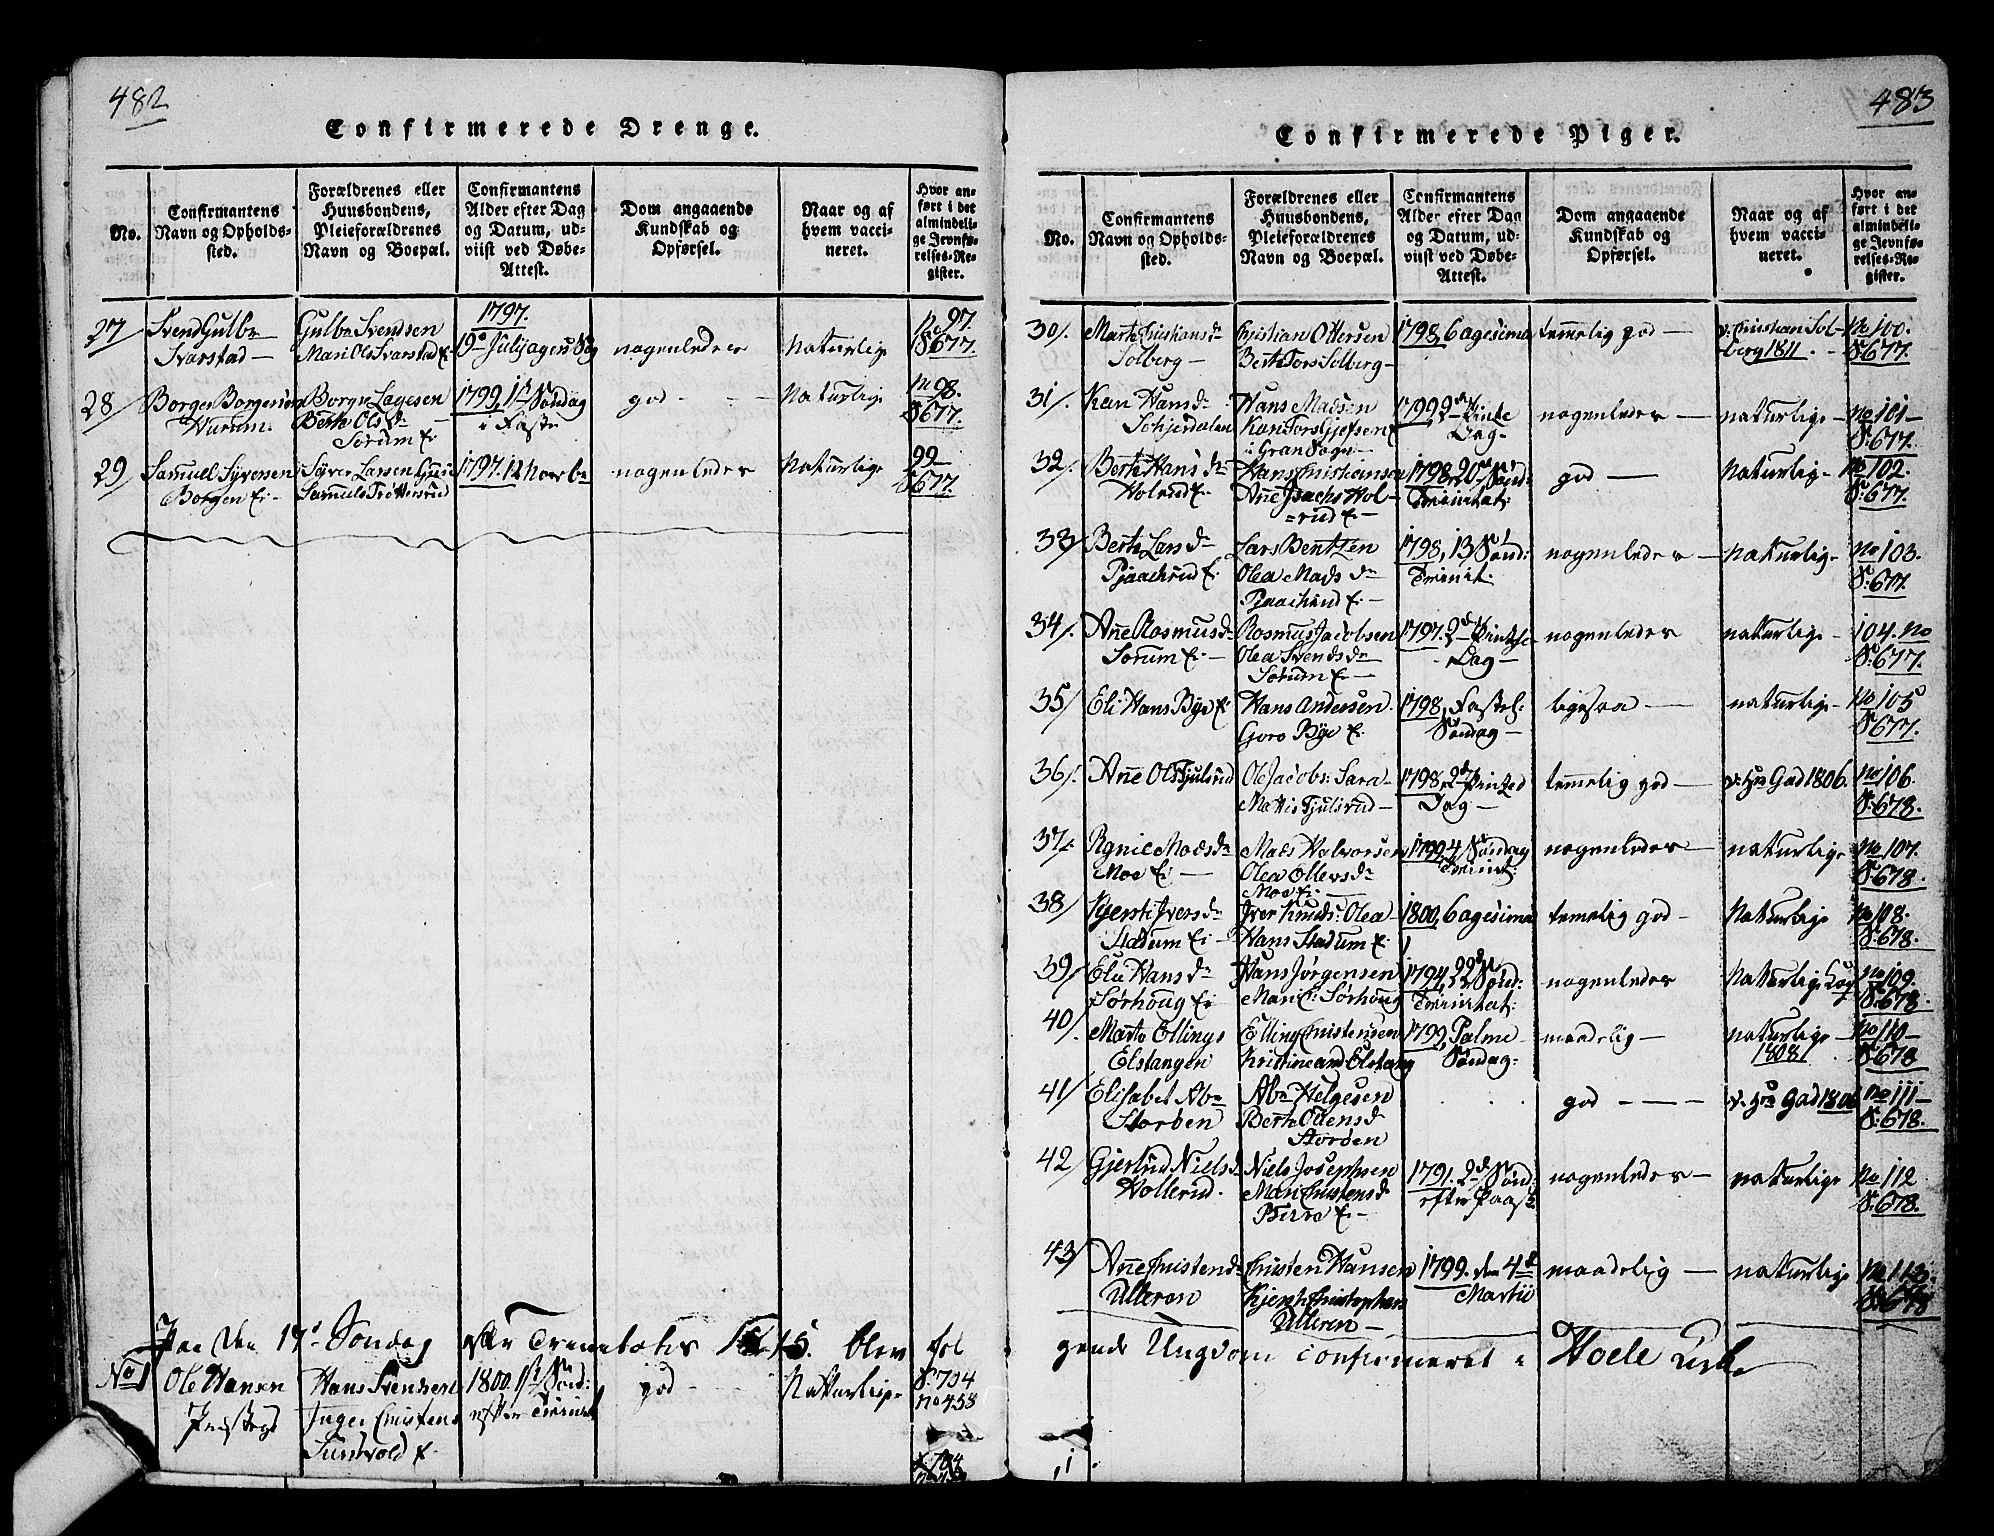 482
Confirmerede Drenge.
No.
Confirmantens
Navn og Opholds-
sted.
Forældrenes eller
Huusbondens,
Pleieforældrenes
Navn og Boepæl.
Confirmantens
Alder efter Dag
og Datum, ud-
viist ved Døbe-
Attest.
Dom angaaende
Kundskab og
Opførsel.
Naar og af
hvem vacci-
neret.
Hvor an-
ført i det
almindeli-
ge Jevnfø-
relses-Re-
gister.
27/
Svend Gulbr
Svarstad —
Gulbr Svendsen
Mari Ols Svarstad E.
1797.
nogenledes
Naturlige
No 97.
S. 677.
28/
Borger Borgersen
Børge Lagesen
Berthe Ols dr
Sørum E.
1799, 1st Søndag
i Faste
god - - -
Naturlige
No 98.
S. 677.
29/
Samuel Syversen
Borgen E.
Syver Larsen
1797. 12 Novebr
nogenledes
Naturlige
99
S. 677.
Paa den 17d Søndag efter Trinitatis 1815. blev
fol
No 1
Ole Hansen
Hans Svendsen
Inger Christens
Sundvold E.
1800. 1st Sønd:
efter Trinit
god - - -
Naturlige
S. 704
No 458
483
Confirmerede Piger.
No.
Confirmantens
Navn og Opholds-
sted.
Forældrenes eller
Huusbondens,
Pleieforældrenes
Navn og Boepæl.
Confirmantens
Alder efter Dag
og Datum, ud-
viist ved Døbe-
Attest.
Dom angaaende
Kundskab og
Opførsel.
Naar og af
hvem vacci-
neret.
Hvor an-
ført i det
almindeli-
ge Jevnfø-
relses-Re-
gister.
30/.
Marthe Christians dr
Solberg —
Christian Ottersen
Berthe Tors Solberg —
1798, 6agesima
temmelig god —
v. Christian Sol-
berg 1811. -
No 100.
S. 677.
31/.
Kari Hans dr
Schjerdalen
Hans Madsen
i Gran Sogn —
1799 2d Pintse
Dag —
nogenledes —
naturlige -
No 101 —
S. 677.
32/.
Berthe Hans dr
Holrud E. —
Hans Christiansen
Anne Isachs Hol-
=rud E —
1798, 20d Sønd:
Trinitat:
god —
Naturlig -
No 102.
S. 677.
33/
Berthe Lars dr
Pjaachrud E. —
Lars Bentzen
Olea Mads dr
Pjaachrud E. —
1798, 13 Sønd:
Trinit.
nogenledes —
naturlig -
No 103.
S. 677.
34/.
Anne Rasmus dr
Sørum E. —
Rasmus Jacobsen
Olea Svends dr
Sørum E. —
1797. 2d Pintse-
- Dag —
nogenledes
naturlige -
104. No
S. 677.
35/
Eli Hans Bye E.
Hans Andersen.
Goro Bye E.
1798, Fastel:
Søndag —
ligesaa —
naturlige -
No 105
S. 677.
36/.
Anne Ols Tjulsrud
Ole Jacobs: Sara —
Mattis Tjulsrud —
1798, 2d Pintsed
Dag —
temmelig god —
v. Hr Gad 1806.
No 106.
S. 678.
37/.
Moe E. —
Mads Halvorsen
Olea Ellevs dr
Moe E. —
1799, 4 Søndag
Trinit:
nogenledes —
naturlige
No 107.
S. 678.
38/
Kjersti Ivers dr
Stadum E. —
Iver Knuds: Olea —
Hans Stadum E.
1800, 6agesima
temelig god -
Naturlige
No 108.
S. 678.
39/
Elie Hans dr
Sørhoug E.
Hans Jørgensen
Mari E: Sørhoug
1794, 22d Sønd:
Trinitat:
nogenledes
No 109.
S. 678
40/.
Marte Ellings
Elstangen
Elling Christensen
1799, Palme
Søndag:
maadelig —
naturlige —
1808
No 110 —
S. 678
41/
Elisabet Abr
Storøen
Abr Helgesen
Berthe Oliens d
Storøen
god — - — -
v. Hr Gad 1806
No 111 —
S. 678.
42/
Gjertrud Niels d
Hollerud.
Niels Josephsen
Mari Christens d
1791. 2d Sønd:
efter Paask
nogenledes —
naturlige
No 112
S. 678.
43/
Anne Christens dr
Ulleren
Christen Hansen
Kjersti Christophers
Ulleren —
1799. den 4de
Martii
maadelig —
naturlige
No 113.
S. 678
gende Ungdom confirmeret i Hole Kirke